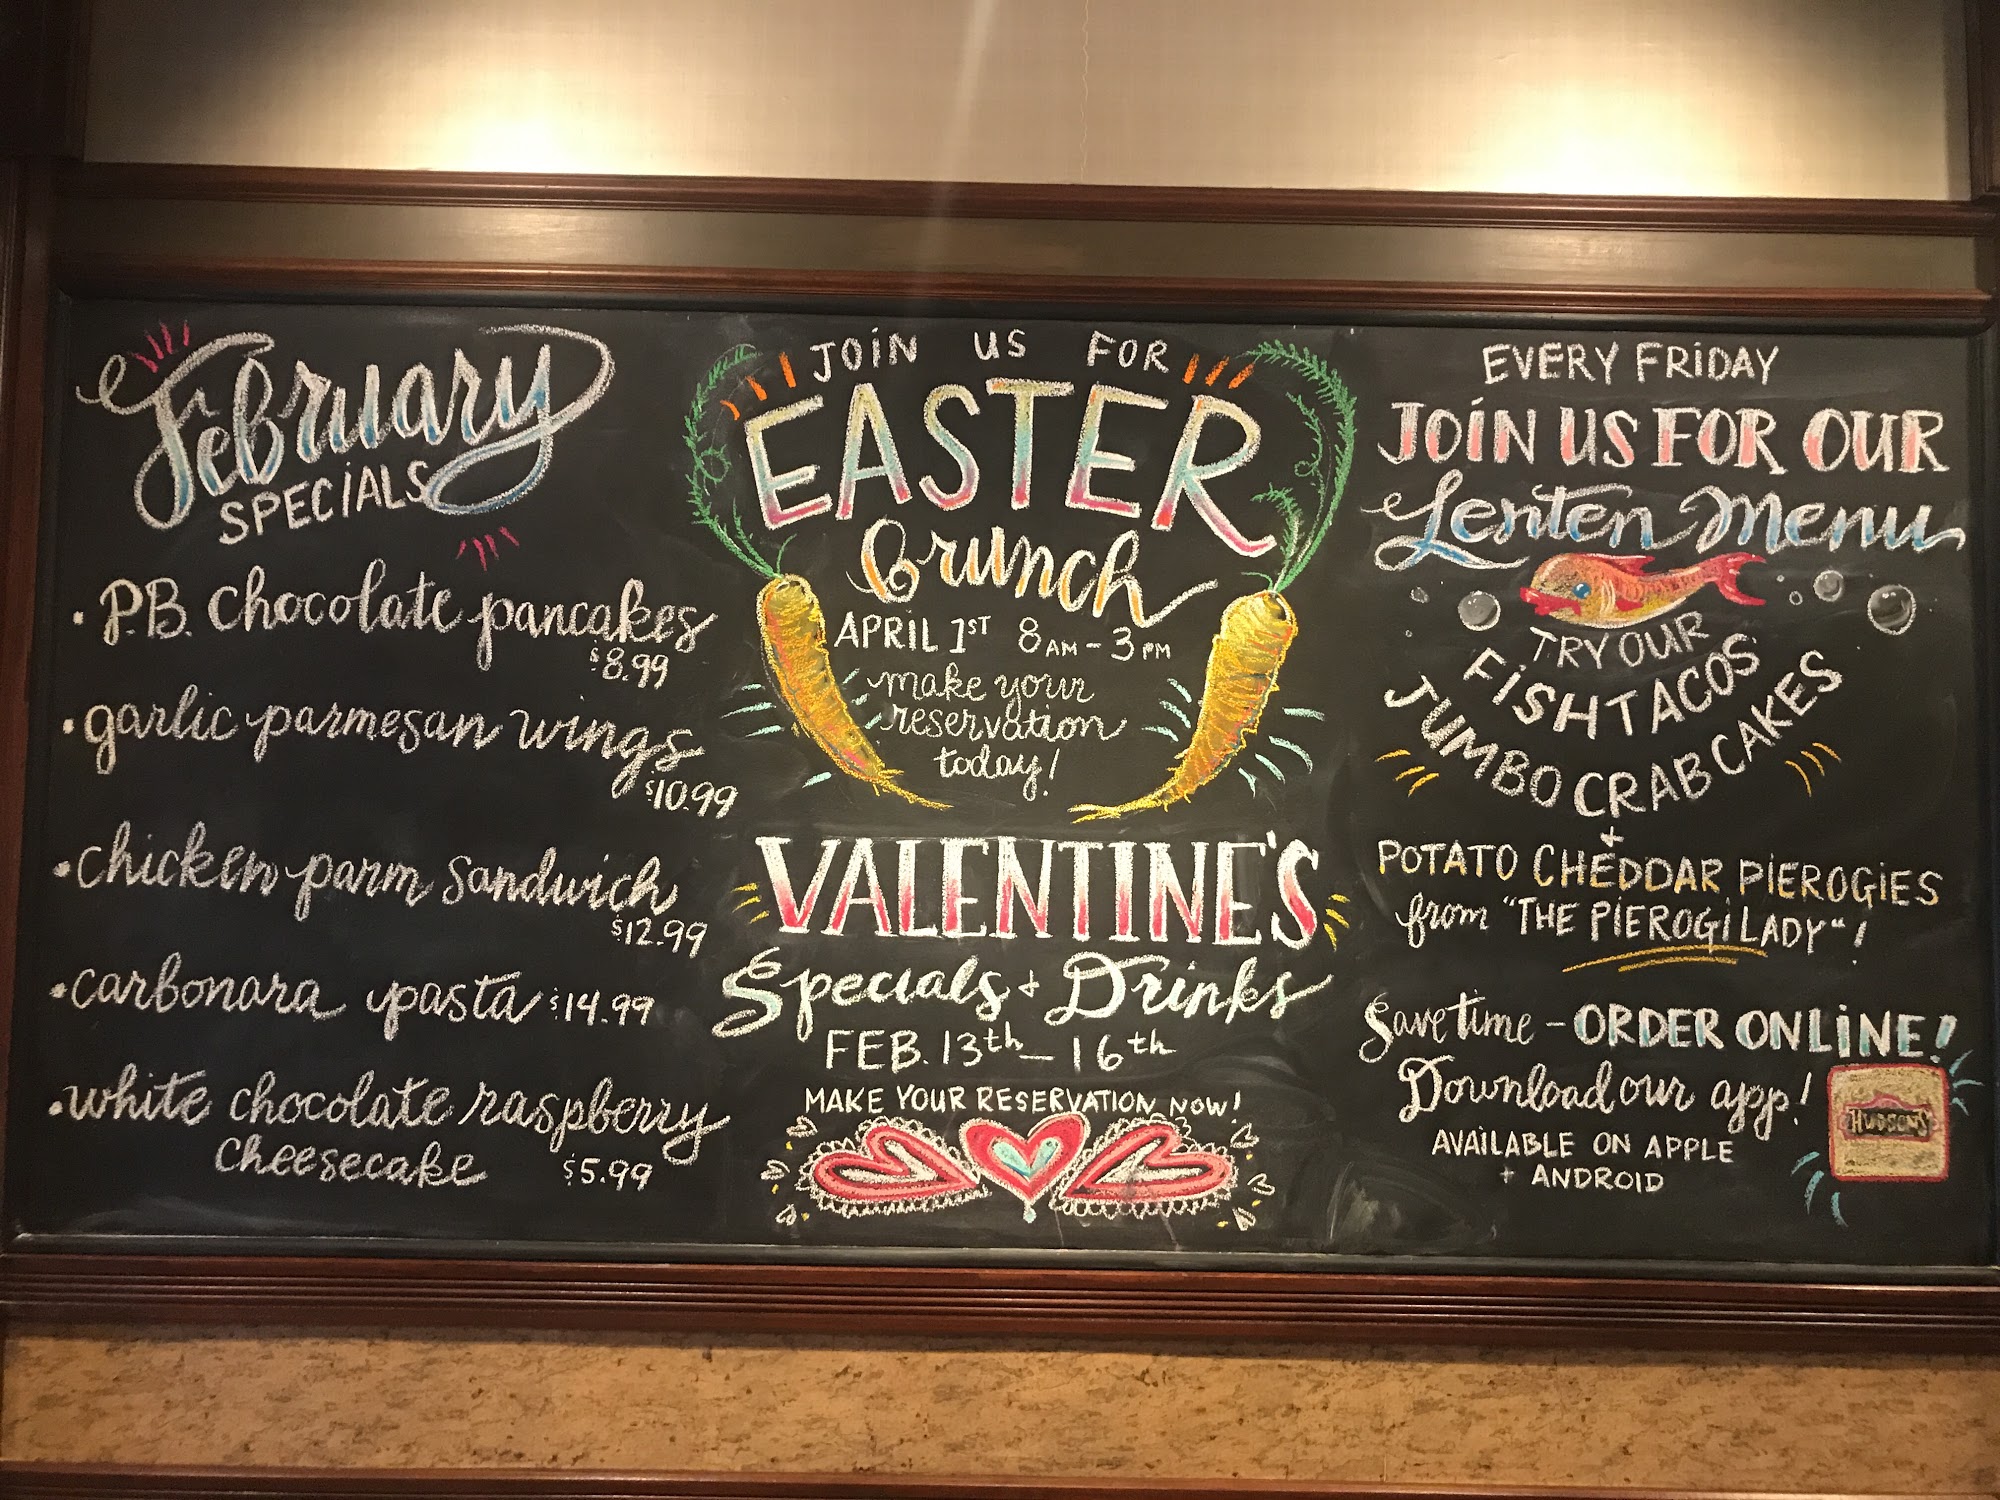 February
SPECIALS
• P.B. chocolate pancakes
$8.99
• garlic parmesan wings
$10.99
• chicken parm sandwich
$12.99
• carbonara pasta $14.99
• white chocolate raspberry
cheesecake $5.99
JOIN US FOR
EASTER
brunch
APRIL 1ST 8AM - 3PM
make your
reservation
today!
VALENTINE'S
Specials + Drinks
FEB. 13th - 16th
MAKE YOUR RESERVATION NOW!
EVERY FRIDAY
JOIN US FOR OUR
Lenten Menu
TRY OUR
FISH TACOS
JUMBO CRAB CAKES
+
POTATO CHEDDAR PIEROGIES
from "THE PIEROGI LADY"!
Save time - ORDER ONLINE!
Download our app!
AVAILABLE ON APPLE
+ ANDROID
HUDSON'S